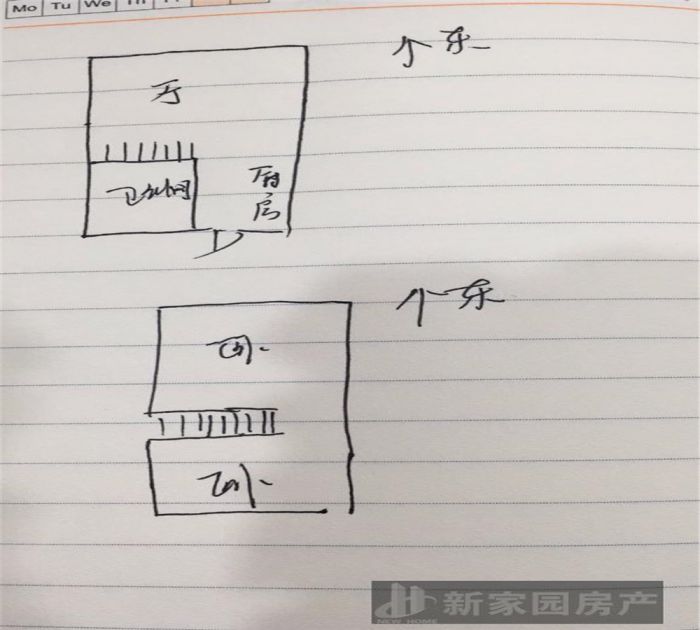 Mo Tu We Th
东
厅
卫生间
厨房
东
卧
卧
新家园房产
NEW HOME